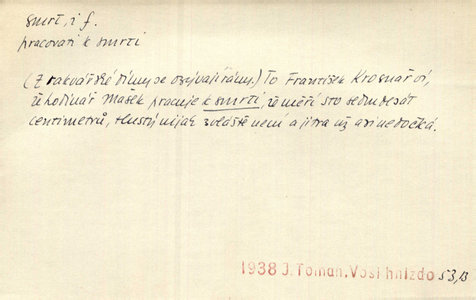 smrt, i f.
pracovati k smrti
(Z rakvářské dílny se ozývají rány.) To František Krosnář ví,
že hodinář Mašek pracuje k smrti, že měří sto sedmdesát
centimetrů, tlustý nijak zvláště není a jitra už asi nedočká.
1938 J. Toman, Vosí hnízdo 53,13